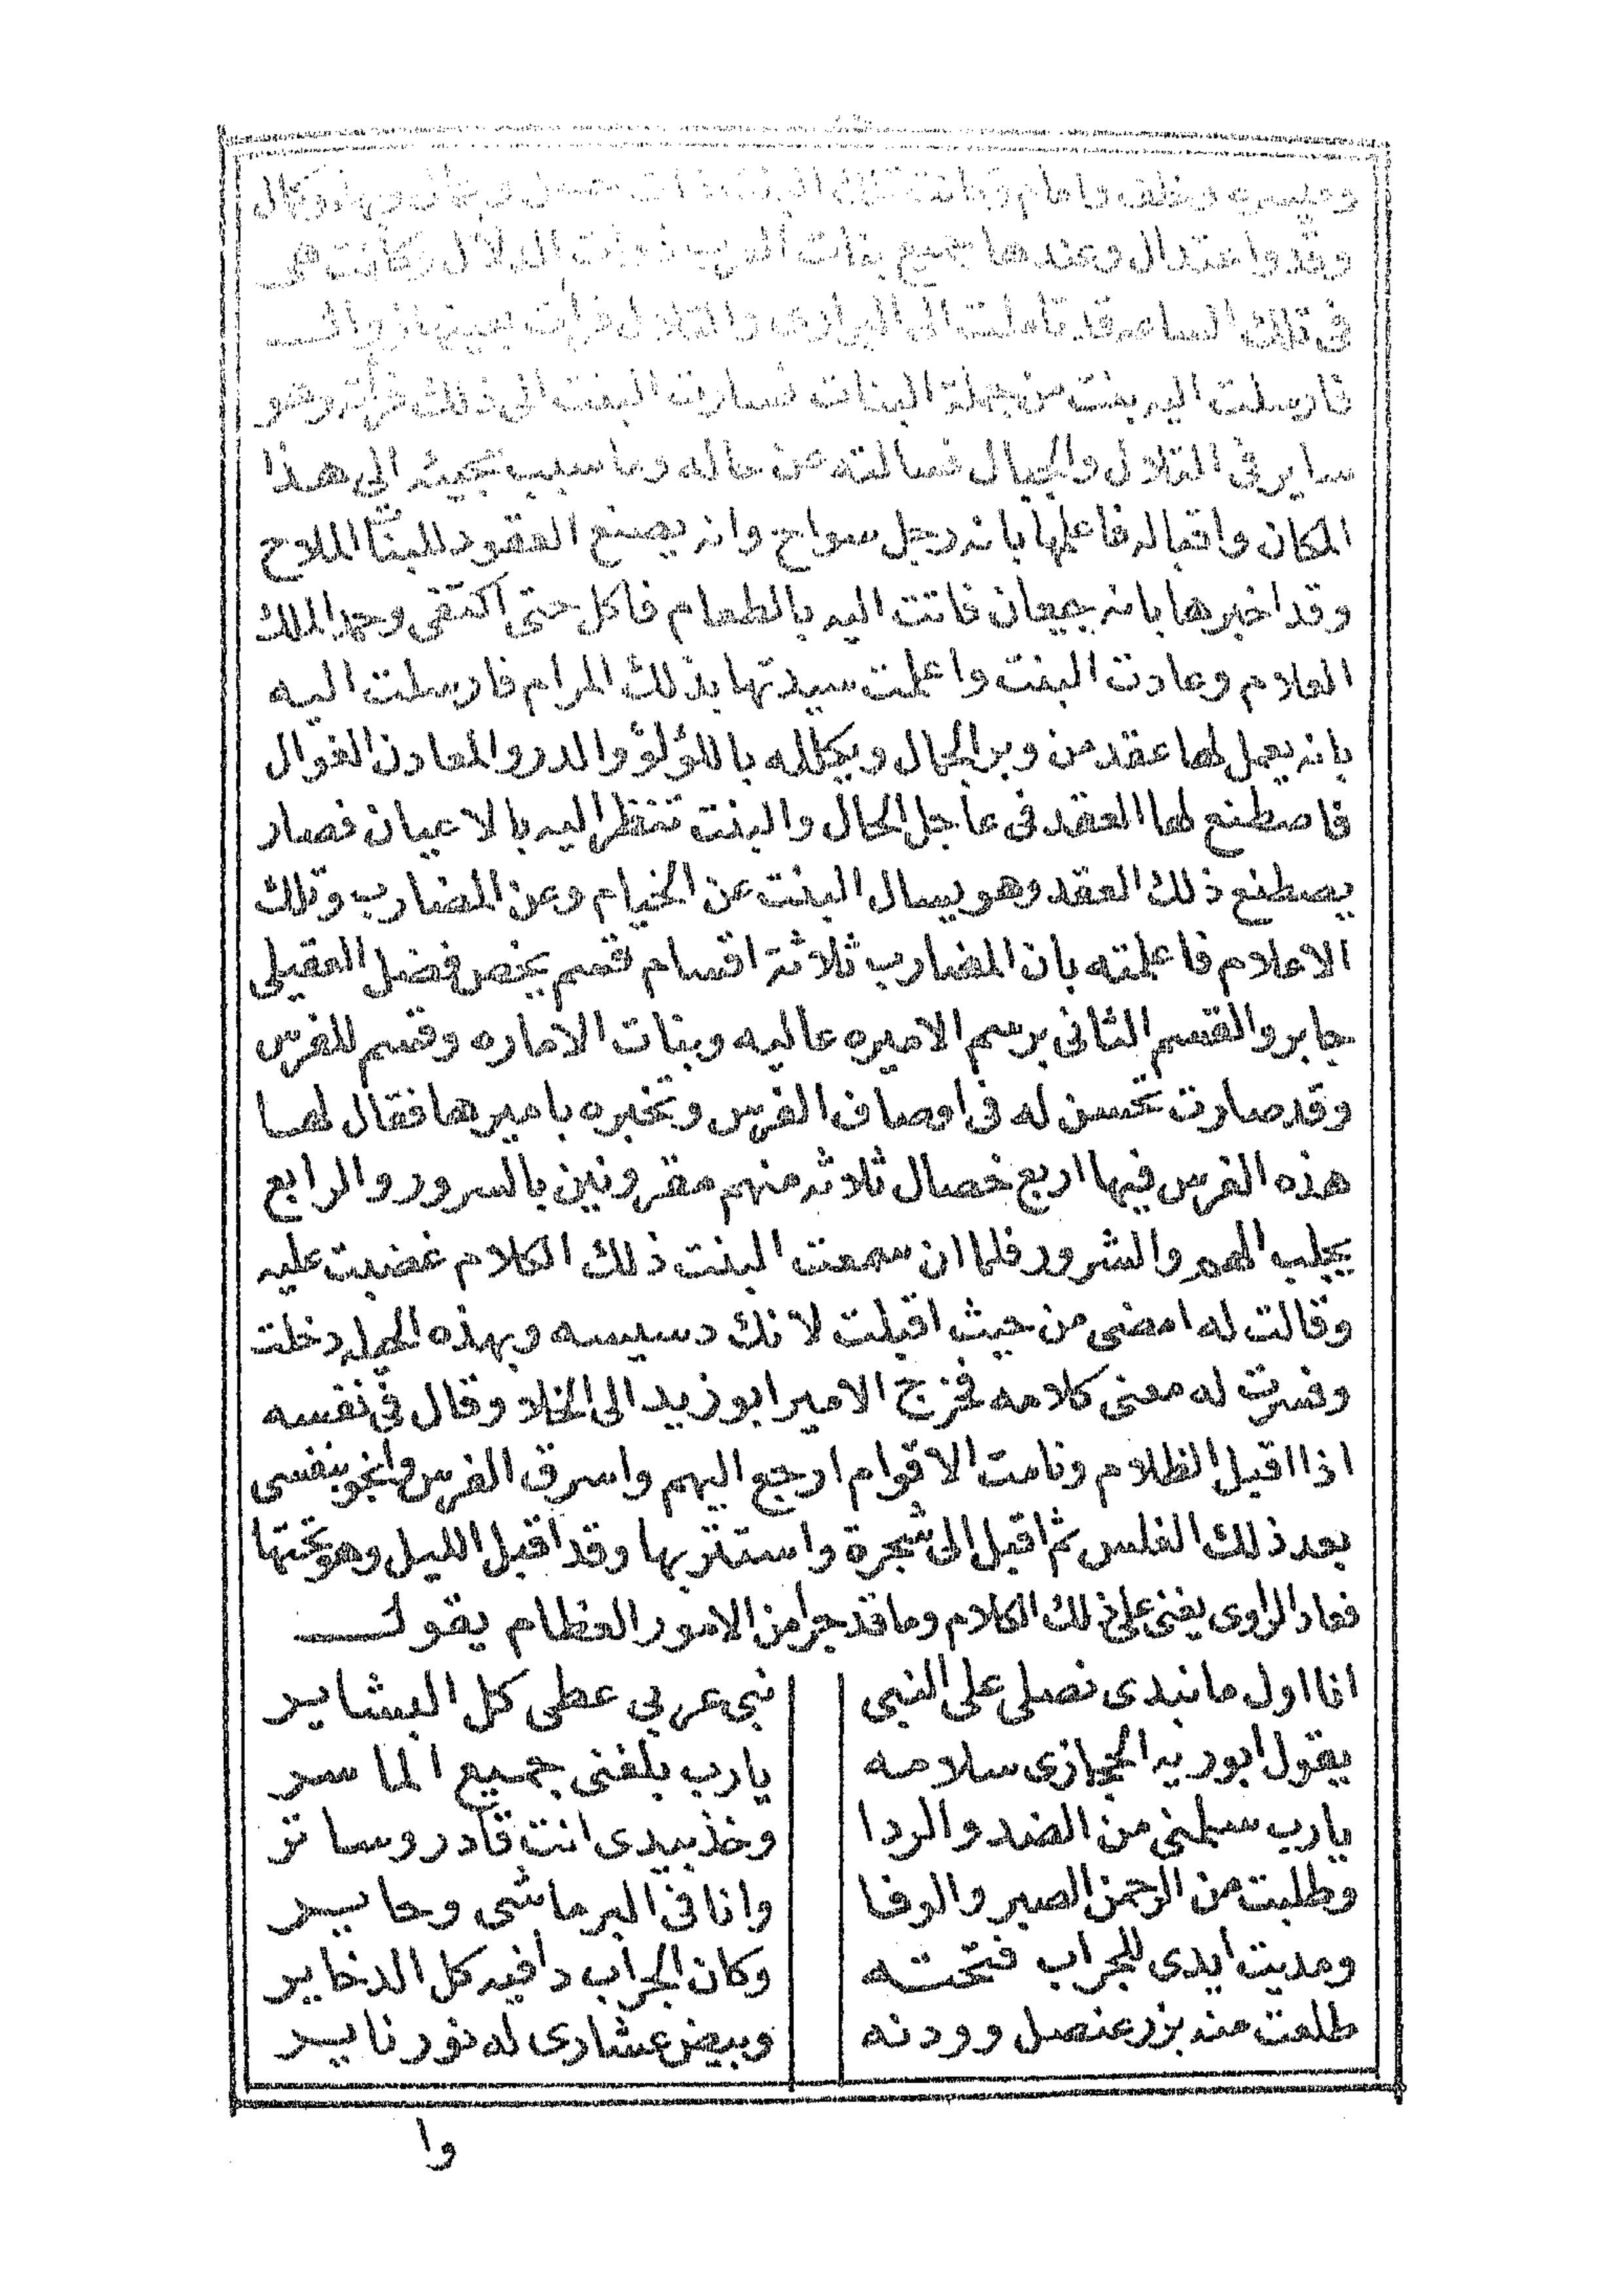 وميسره وخلف وامام وكانت تلك البنت ذات حسن وجمال وبها وكمال
وقد واعتدال وعندها جميع بنات العرب ذوات الدلال وكانت هى
فى تلك الساعه قد تاملت الى البرارى والتلال فرات بعينها
فارسلت اليه بنت من جملة البنات فسارت البنت الى ذلك فراته وهو
ساير فى التلال والجبال فسالته عن حاله وما سبب مجيئه الى هذا
المكان واقباله فاعلمها بانه رجل سواح وانه يصنع العقود للبنات الملاح
وقد اخبرها بانه جيعان فاتت اليه بالطعام فاكل حتى اكتفى وحمد الملك
العلام وعادت البنت واعلمت سيدتها بذلك المرام فارسلت اليه
بانه يعمل لها عقد من وبر الجمال ويكلله باللؤلؤ والدر والمعادن الغوال
فاصطنع لها العقد فى عاجل الحال والبنت تنظر اليه بالاعيان فصار
يصطنع ذلك العقد وهو يسال البنت عن الخيام وعن المضارب وتلك
الاعلام فاعلمته بان المضارب ثلاثة اقسام قسم يخص فضل العقيلى
جابر والقسم الثانى برسم الاميره عاليه وبنات الاماره وقسم للفرس
وقد صارت تحسن له فى اوصاف الفرس وتخبره باميرها فقال لها
هذه الفرس فيها اربع خصال ثلاثه منهم مقرونين بالسرور والرابع
يجلب الهم والشرور فلما ان سمعت البنت ذلك الكلام غضبت عليه
وقالت له امضى من حيث اقبلت لانك دسيسه وبهذه الحيله دخلت
وفسرت له معنى كلامه فخرج الامير ابوزيد الى الخلا وقال فى نفسه
اذا اقبل الظلام ونامت الاقوام ارجع اليهم واسرق الفرس وانجو بنفسى
بعد ذلك الغلس ثم اقبل الى شجرة واستتر بها وقد اقبل الليل وهو تحتها
فعاد الراوى يغنى على ذلك الكلام وما قد جرا من الامور العظام يقول
انا اول ما نبدى نصلى على النبى نبى عربي عطى كل البشاير
يقول ابوزيد الحجازى سلامه يارب بلغنى جميع الماسر
يارب سلمنى من الضد والردا وخذ بيدى انت قادر وساتر
وطلبت من الرحمن الصبر والوفا وانا فى البر ماشى وحاير
ومديت ايدى للجراب فتحته وكان الجراب دا فيه كل الدخاير
طلعت منه بزر عنصل وودنه وبيض عشارى له نور ناير
وا